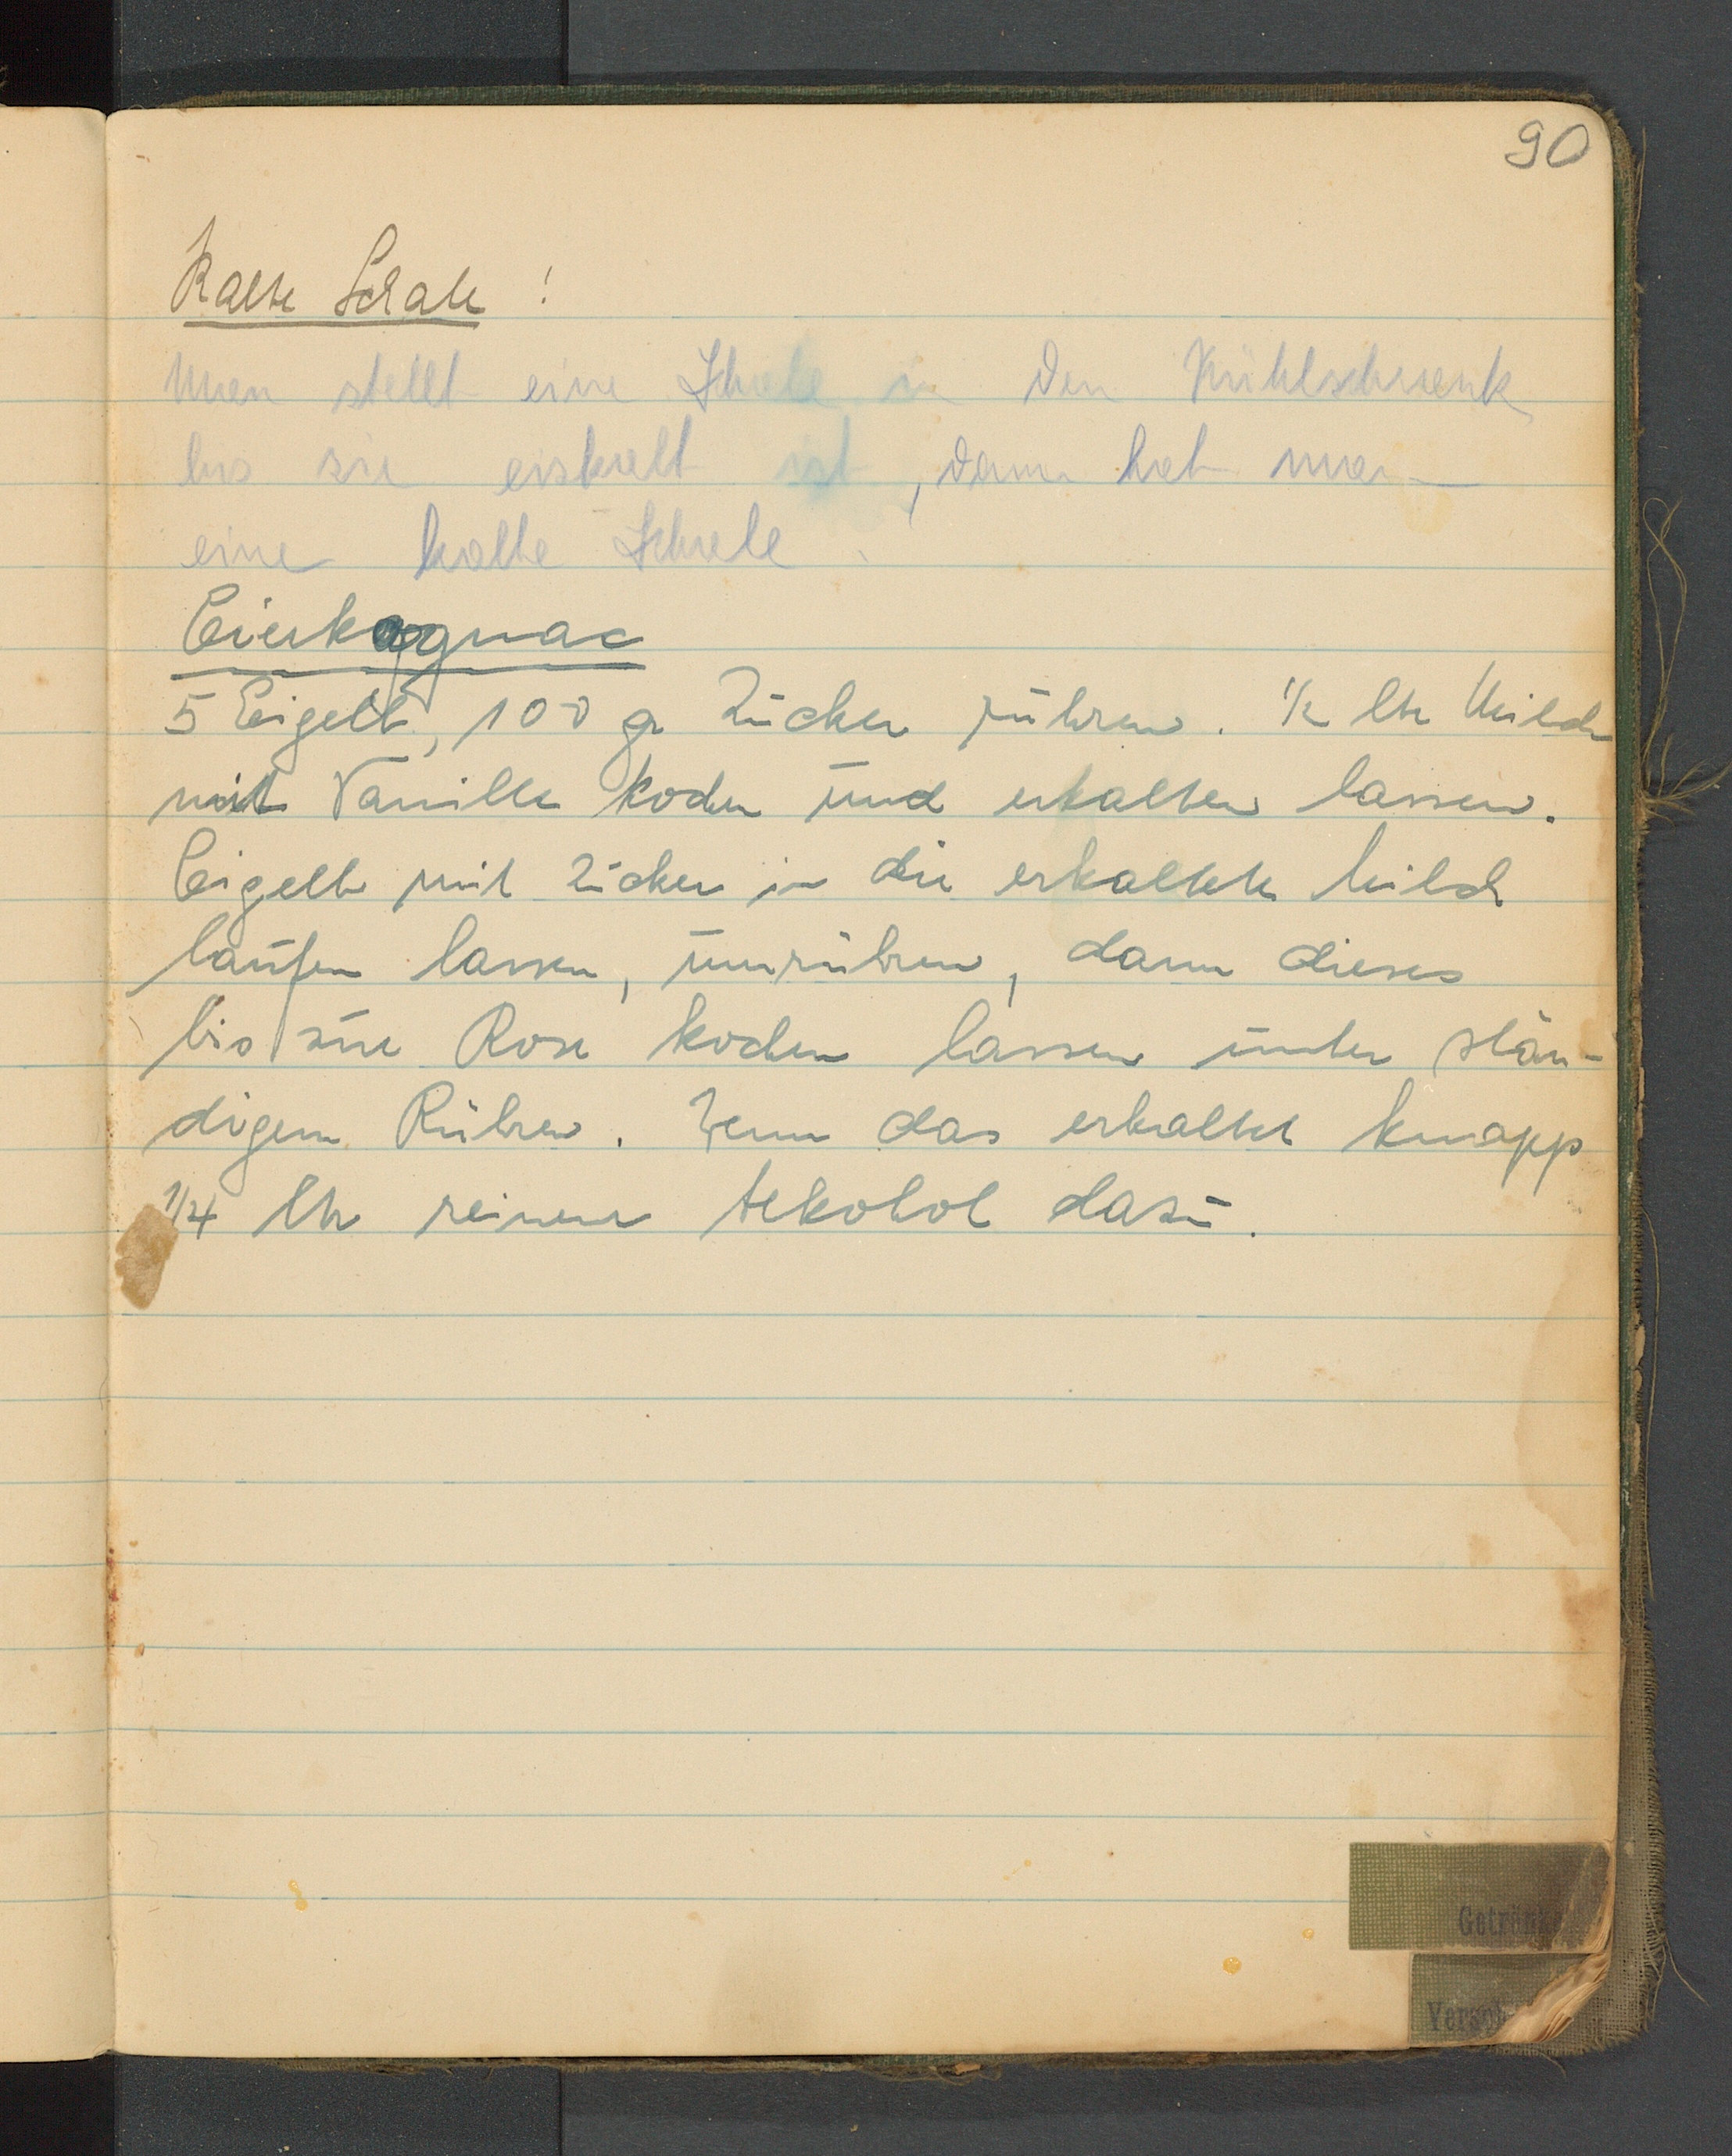 90
Kalte Schale !
Man stellt eine Schale in den Kühlschrank
bis sie eiskalt ist, dann hat man
eine kalte Schale.
Eierkognac
5 Eigelb, 100 gr Zucker rühren. 1/2 ltr Milch
mit Vanille kochen und erkalten lassen.
Eigelb mit Zucker in die erkaltete Milch
laufen lassen, umrühren, dann dieses
bis zur Rose kochen lassen unter stän-
digem Rühren. Wenn das erkaltet knapp
1/4 ltr reinen Alkohol dazu.
Getränke